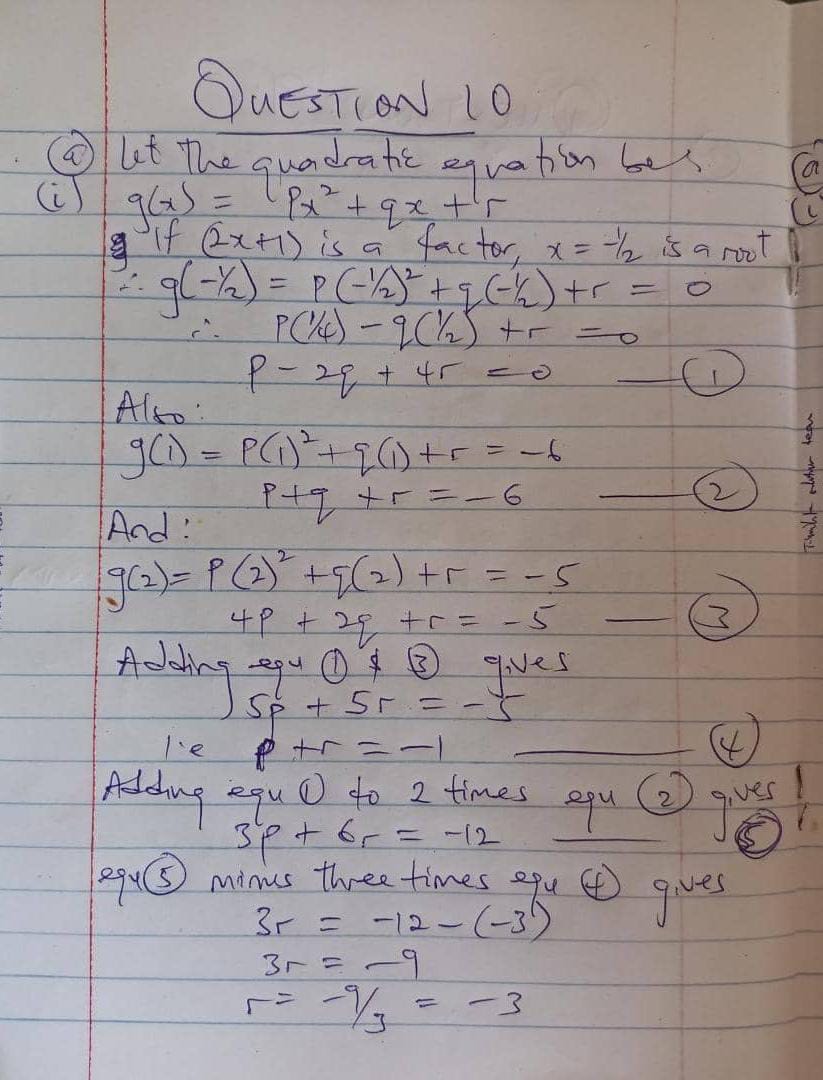 QUESTION 10
(a) Let the quadratic equation be
(i) g(x) = Px² + qx + r
If (2x+1) is a factor, x = -½ is a root
∴ g(-½) = P(-½)² + q(-½) + r = 0
∴ P(¼) - q(½) + r = 0
P - 2q + 4r = 0 — (1)
Also:
g(1) = P(1)² + q(1) + r = -6
P + q + r = -6 — (2)
And:
g(2) = P(2)² + q(2) + r = -5
4P + 2q + r = -5 — (3)
Adding equ (1) & (3) gives
5p + 5r = -5
i.e p + r = -1 — (4)
Adding equ (1) to 2 times equ (2) gives
3p + 6r = -12 — (5)
equ (5) minus three times equ (4) gives
3r = -12 - (-3)
3r = -9
r = -9/3 = -3
(a)
(i